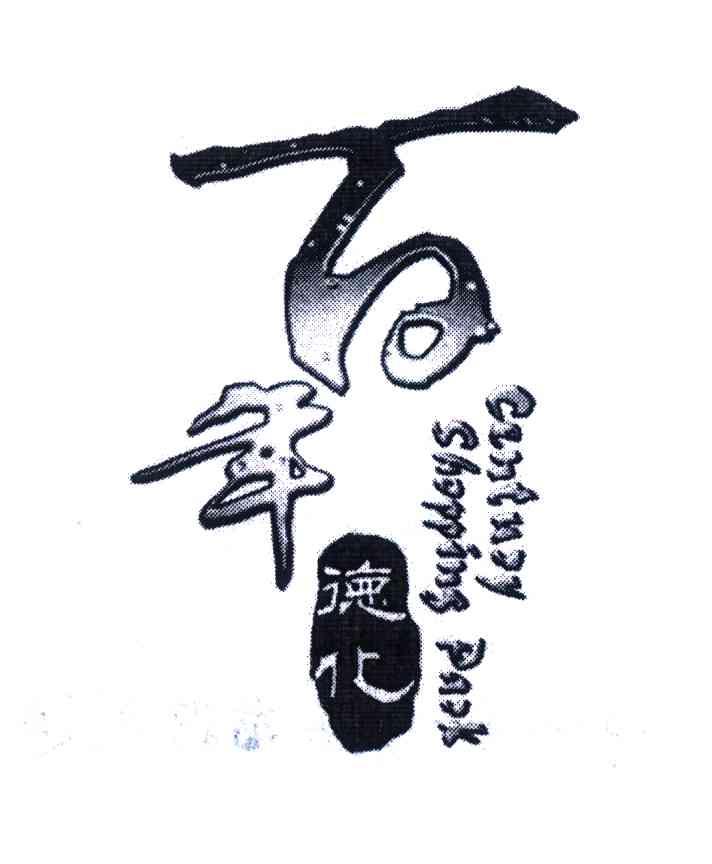 百年
德化
Century
Shopping Park